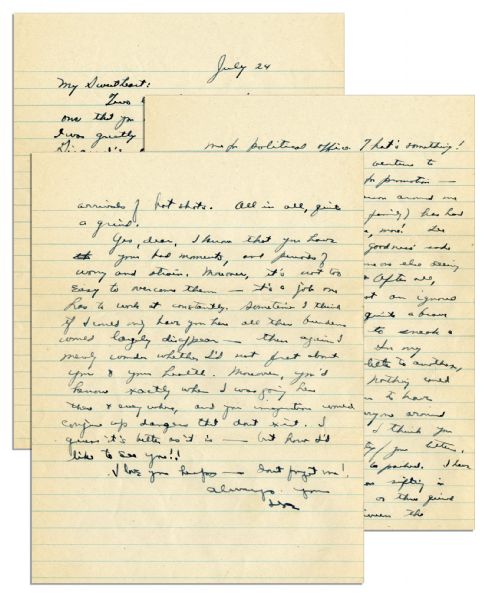 July 24
My Sweetheart:
Two
one that you
I was greatly
me for political office. That's something!
venture to
for promotion —
around me
family) has had
more! Les
Goodness' sake
else being
After all,
not an ignored
quite a brave
to sneak a
In my
to another,
Nothing could
to have
around
I think you
letters.
to packed. I have
is
or this grind
the
arrivals of hot shots. All in all, quite
a grind.
Yes, dear, I know that you have
your bad moments, and periods of
worry and strain. Moreover, it's not too
easy to overcome them — it's a job one
has to work at constantly. Sometimes I think
if I could only have you here all these burdens
would largely disappear — then again I
merely wonder whether I'd not fret about
you & your health. Moreover, you'd
know exactly when I was going here
there & everywhere, and your imagination would
conjure up dangers tht don't exist. I
guess it's better as it is — but how I'd
like to see you!!
I love you heaps — don't forget me!
Always your